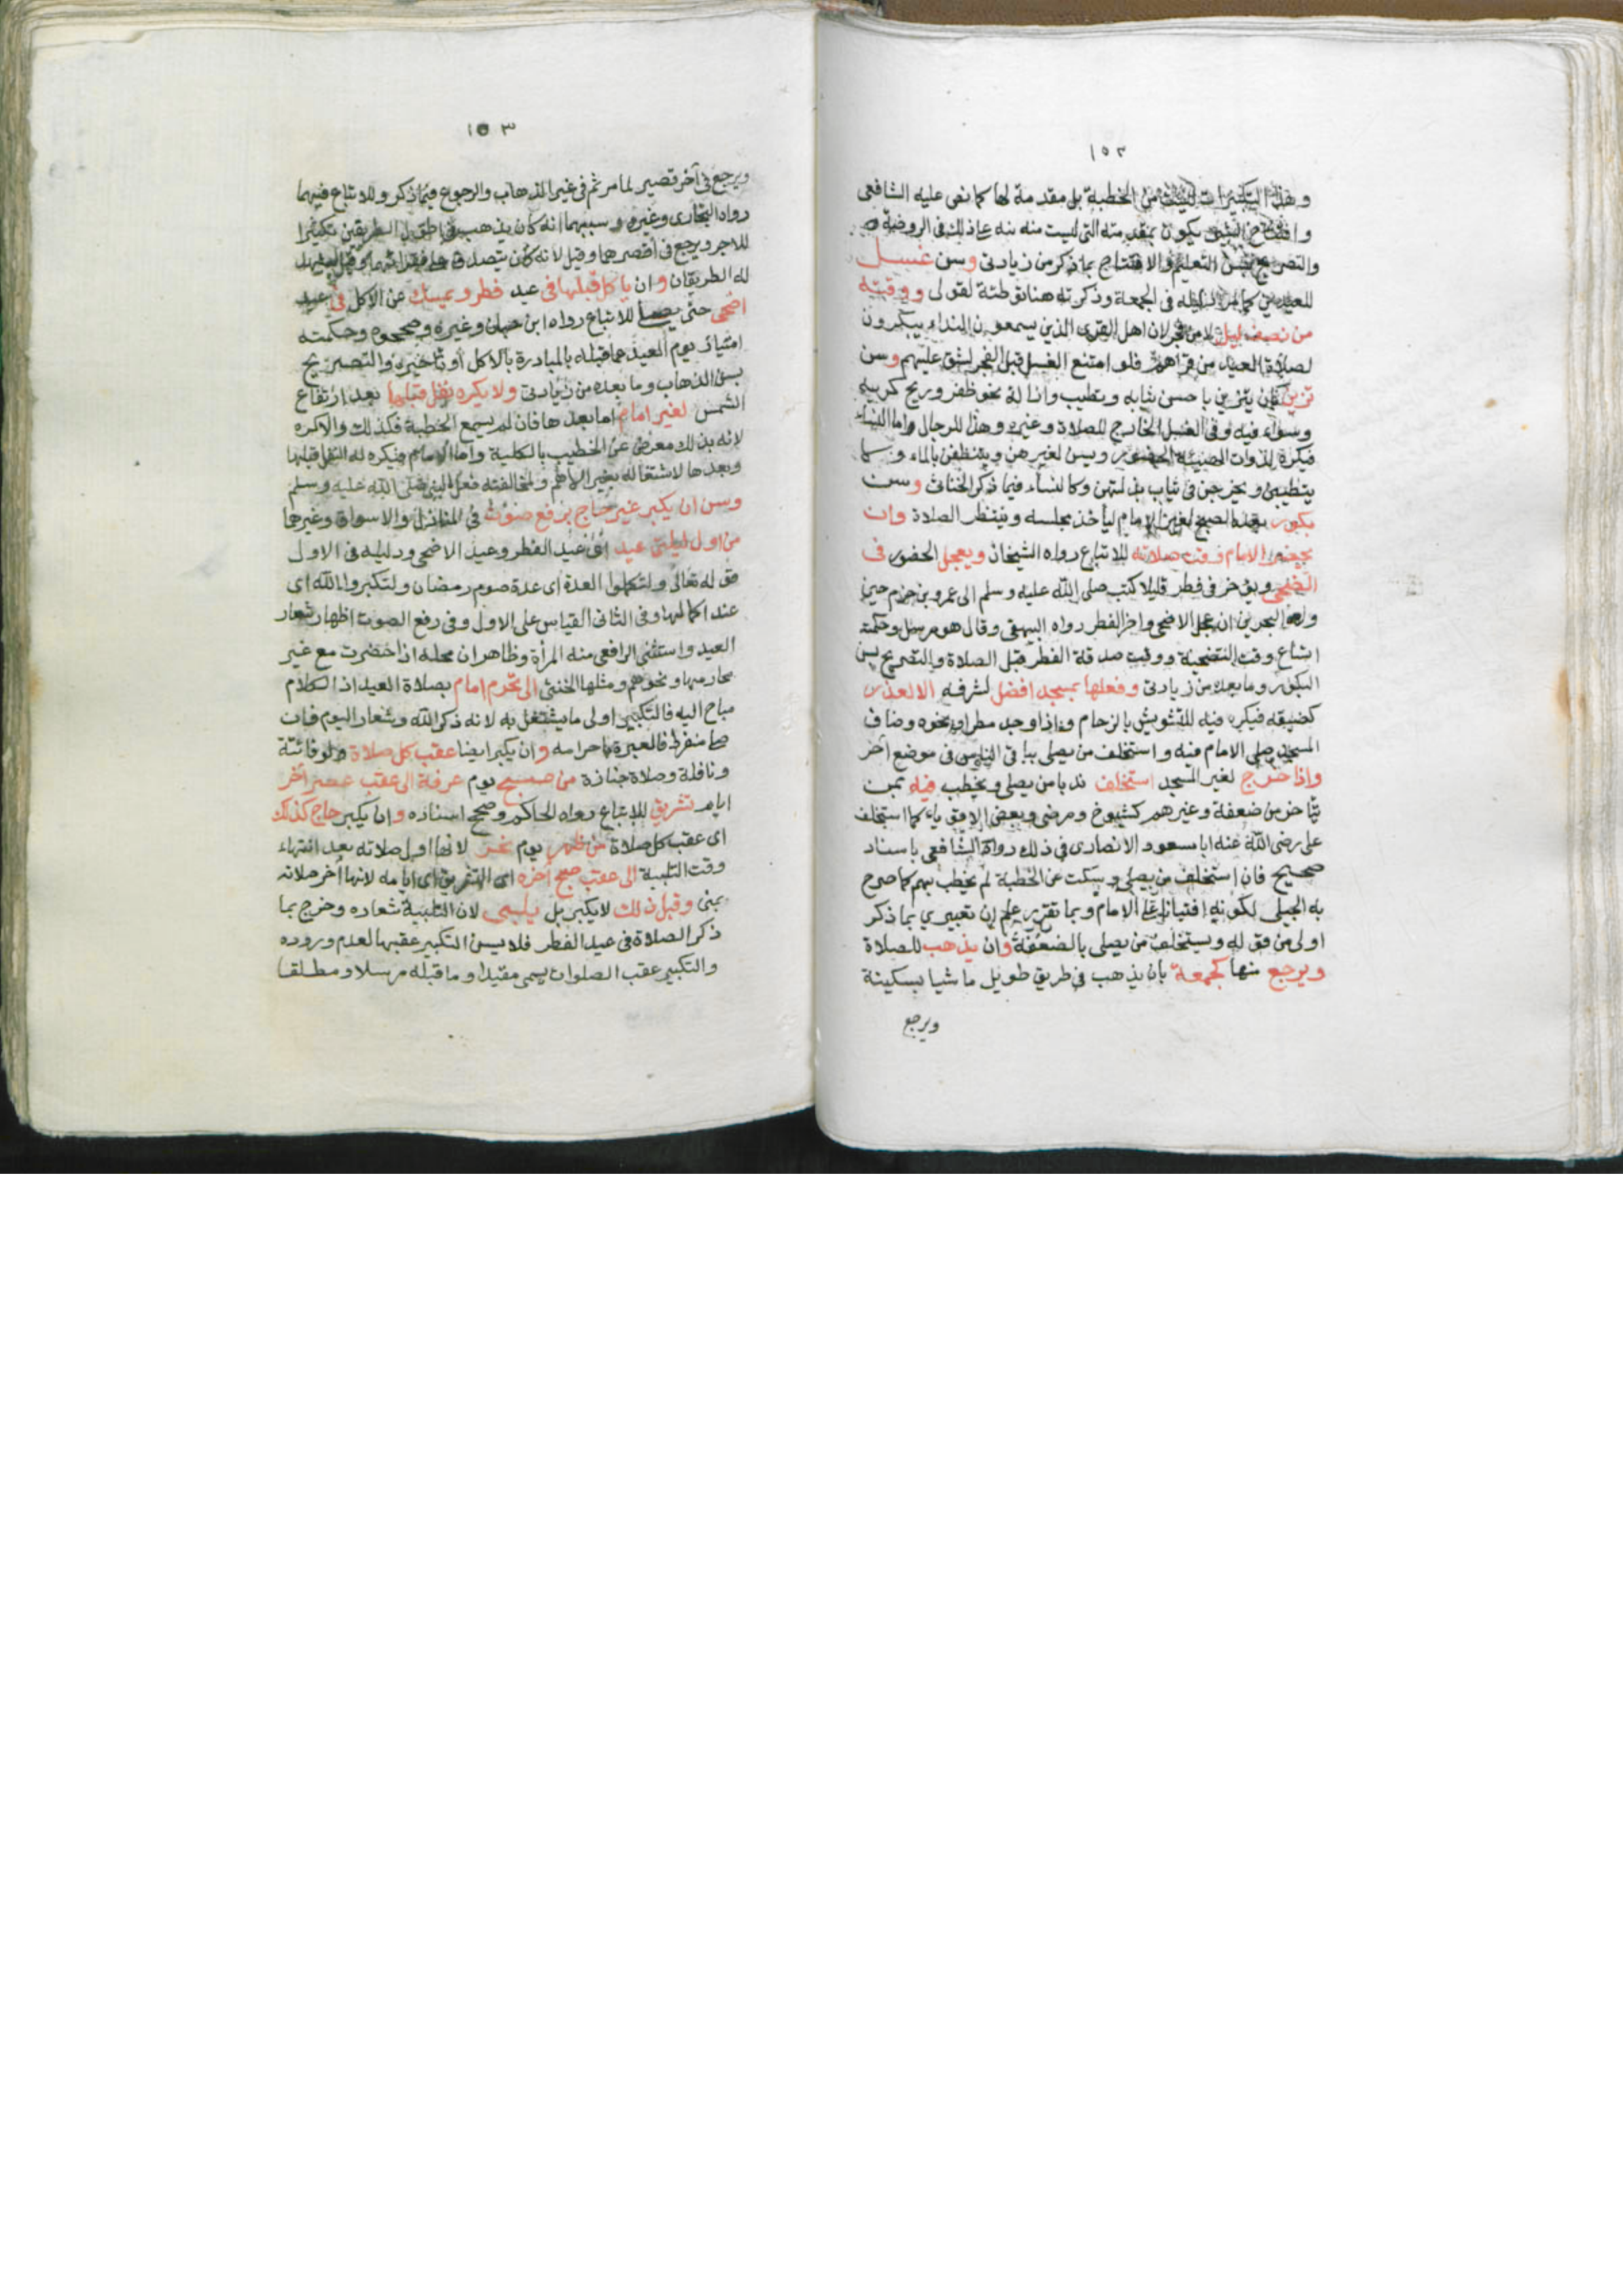 ١٥٢
وهذه التكبيرات ليست من الخطبة بل مقدمة لها كما نص عليه الشافعى
وافتتاح الشئ يكون بمقدمته التى ليست منه نبه على ذلك فى الروضة
والتصريح بسن التعليم والافتتاح بما ذكر من زيادتى وسن غسل
للعيدين كما مر دليله فى الجمعة وذكرته هنا توطئة لقولى ووقته
من نصف ليل لا من فجر لان اهل القرى الذين يسمعون النداء يبكرون
لصلاة العيد من قراهم فلو امتنع الغسل قبل الفجر لشق عليهم وسن
تزين بان يتزين باحسن ثيابه وبتطيب وازالة نحو ظفر وريح كريه
وسواء فيه وفى الغسل الخارج للصلاة وغيره وهذا للرجال واما النساء
فيكره لذوات الهيئة الحضور ويسن لغيرهن ويتنظفن بالماء ولا
يتطيبن ويخرجن فى ثياب بذلتهن وكالنساء فيما ذكر الخناثى وسن
بكور بعد الصبح لغير الامام ليأخذ مجلسه وينتظر الصلاة وان
يحضر الامام وقت صلاته للاتباع رواه الشيخان ويعجل الحضور فى
اضحى ويؤخر فى فطر قليلا كتب صلى الله عليه وسلم الى عمرو بن حزم حين
ولاه البحرين ان عجل الاضحى واخر الفطر رواه البيهقى وقال هو مرسل وحكمته
اتساع وقت التضحية ووقت صدقة الفطر قبل الصلاة والتصريح بسن
البكور وما بعده من زيادتى وفعلها بمسجد افضل لشرفه الا لعذر
كضيقه فيكره فيه للتشويش بالزحام واذا وجد مطر او نحوه وضاق
المسجد صلى الامام فيه واستخلف من يصلى بباقى الناس فى موضع آخر
واذا خرج لغير المسجد استخلف ندبا من يصلى ويخطب فيه بمن
يتأخر من ضعفة وغيرهم كشيوخ ومرضى وبعض الاقوياء كما استخلف
على رضى الله عنه ابا مسعود الانصارى فى ذلك رواه الشافعى باسناد
صحيح فان استخلف من يصلى وسكت عن الخطبة لم يخطب بهم كما صرح
به الجيلى لكونه افتياتا على الامام وبما تقرر علم ان تعبيرى بما ذكر
اولى من قوله ويستخلف من يصلى بالضعفة وان يذهب للصلاة
ويرجع منها كجمعة بان يذهب فى طريق طويل ماشيا بسكينة
ويرجع
١٥٣
ويرجع فى آخر قصير لما مر ثم فى غير الذهاب والرجوع فيما ذكر وللاتباع فيهما
رواه البخارى وغيره وسببهما انه كان يذهب فى اطول الطريقين تكثيرا
للاجر ويرجع فى اقصرهما وقيل لانه كان يتصدق على فقرائهما وقيل ليشهد
له الطريقان وان يأكل قبلها فى عيد فطر ويمسك عن الاكل فى عيد
اضحى حتى يصلى للاتباع رواه ابن حبان وغيره وصححوه وحكمته
امتياز يوم العيد عما قبله بالمبادرة بالاكل او تأخيره والتصريح
بسن الذهاب وما بعده من زيادتى ولا يكره نفل قبلها بعد ارتفاع
الشمس لغير امام اما بعدها فان لم يسمع الخطبة فكذلك والا كره
لانه بذلك معرض عن الخطيب بالكلية واما الامام فيكره له النفل قبلها
وبعدها لاشتغاله بغير الاهم ولمخالفته فعل النبى صلى الله عليه وسلم
وسن ان يكبر غير حاج برفع صوت فى المنازل والاسواق وغيرها
من اول ليلتى عيد اى عيد الفطر وعيد الاضحى ودليله فى الاول
قوله تعالى ولتكملوا العدة اى عدة صوم رمضان ولتكبروا الله اى
عند اكمالها وفى الثانى القياس على الاول وفى رفع الصوت اظهار شعار
العيد واستثنى الرافعى منه المرأة وظاهر ان محله اذا حضرت مع غير
محارمها ونحوهم ومثلها الخنثى الى تحرم امام بصلاة العيد اذ الكلام
مباح اليه فالتكبير اولى ما يشتغل به لانه ذكر الله وشعار اليوم فان
صلى منفردا فالعبرة باحرامه وان يكبر ايضا عقب كل صلاة ولو فائتة
ونافلة وصلاة جنازة من صبح يوم عرفة الى عقب عصر آخر
ايام تشريق للاتباع رواه الحاكم وصحح اسناده وان يكبر حاج كذلك
اى عقب كل صلاة من ظهر يوم نحر لانها اول صلاته بعد انتهاء
وقت التلبية الى عقب صبح آخره اى التشريق اى ايامه لانها آخر صلاته
بمنى وقبل ذلك لا يكبر بل يلبى لان التلبية شعاره وخرج بما
ذكر الصلاة فى عيد الفطر فلا يسن التكبير عقبها لعدم وروده
والتكبير عقب الصلوات يسمى مقيدا وما قبله مرسلا ومطلقا